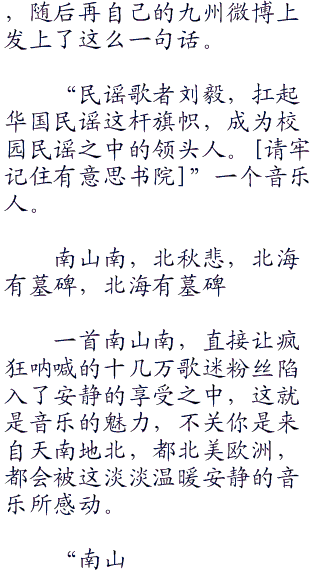 ，随后再自己的九州微博上
发上了这么一句话。
“民谣歌者刘毅，扛起
华国民谣这杆旗帜，成为校
园民谣之中的领头人。[请牢
记住有意思书院]”一个音乐
人。
南山南，北秋悲，北海
有墓碑，北海有墓碑
一首南山南，直接让疯
狂呐喊的十几万歌迷粉丝陷
入了安静的享受之中，这就
是音乐的魅力，不关你是来
自天南地北，都北美欧洲，
都会被这淡淡温暖安静的音
乐所感动。
“南山